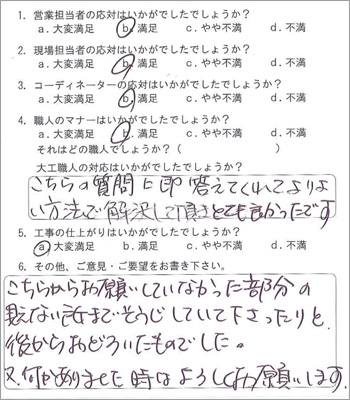 1. 営業担当者の応対はいかがでしたでしょうか?
a. 大変満足 b. 満足 c. やや不満 d. 不満
2. 現場担当者の応対はいかがでしたでしょうか?
a. 大変満足 b. 満足 c. やや不満 d. 不満
3. コーディネーターの応対はいかがでしたでしょうか?
a. 大変満足 b. 満足 c. やや不満 d. 不満
4. 職人のマナーはいかがでしたでしょうか?
a. 大変満足 b. 満足 c. やや不満 d. 不満
それはどの職人でしょうか?( )
大工職人の対応はいかがでしたでしょうか?
こちらの質問に即答えてくれてよりよ
い方法で解決して頂きとても良かったです
5. 工事の仕上がりはいかがでしたでしょうか?
a. 大変満足 b. 満足 c. やや不満 d. 不満
6. その他、ご意見・ご要望をお書き下さい。
こちらからお願いしていなかった部分の
見えない所までそうじしていて下さったりと、
後からおどろいたものでした。
又、何かありました時はよろしくお願いします。